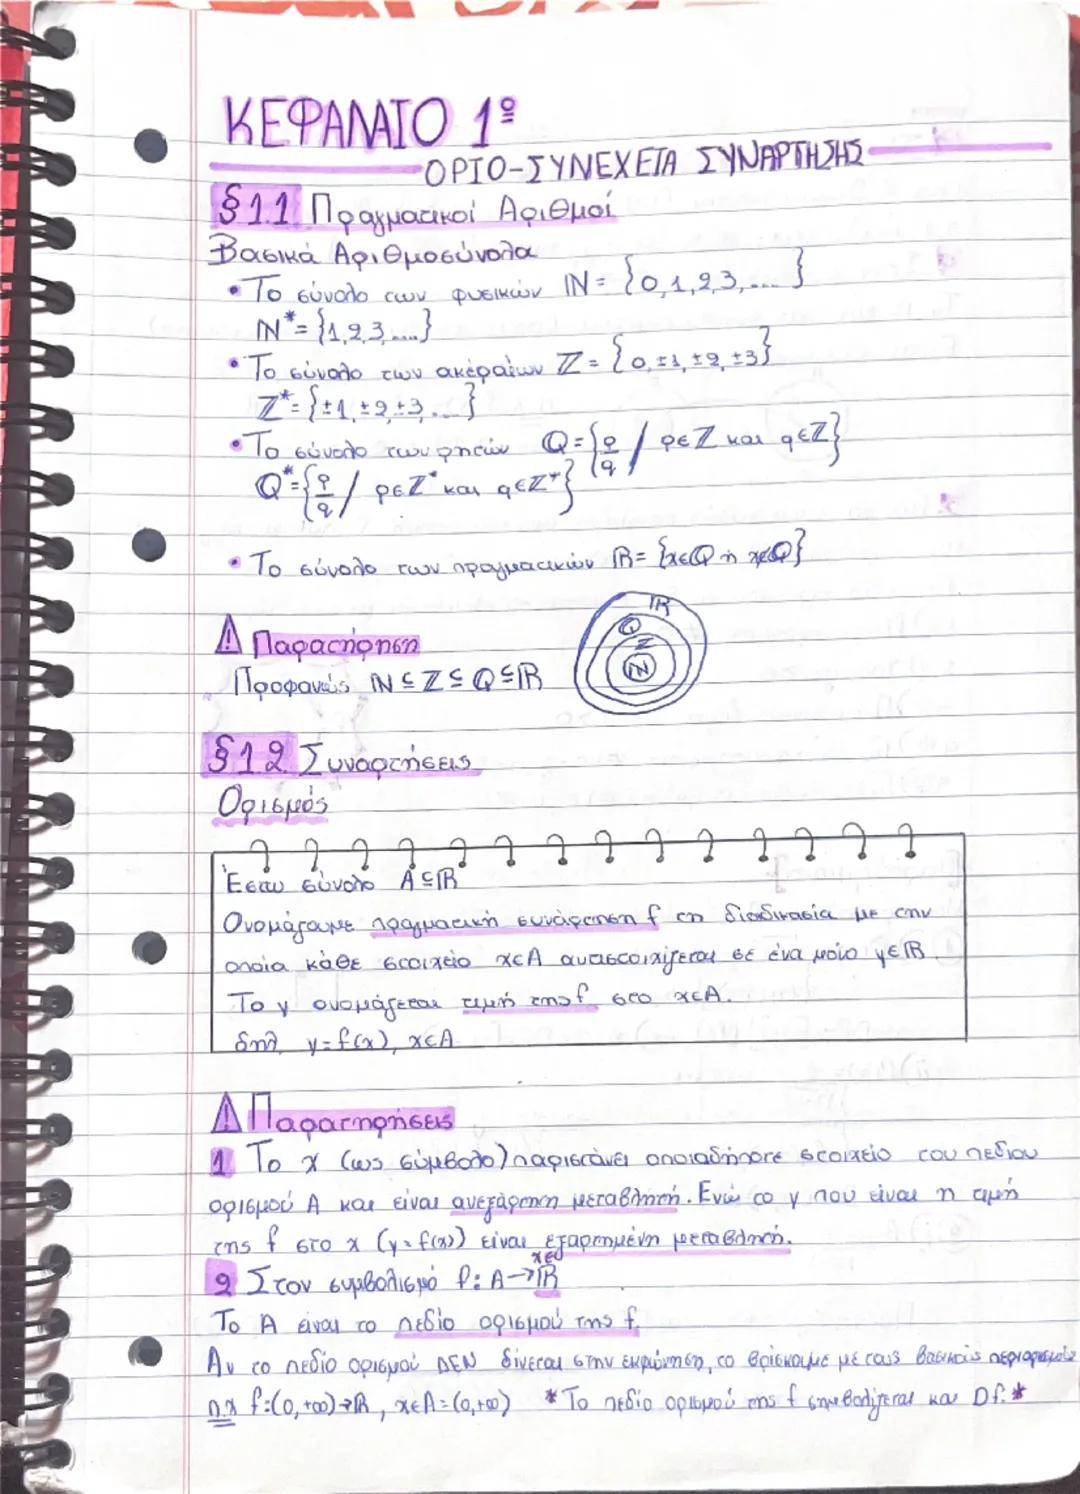 ΚΕΦΑΛΑΙΟ 1º
ΟΡΙΟ-ΣΥΝΕΧΕΙΑ ΣΥΝΑΡΤΗΣΗΣ
§1.1 Πραγματικοί Αριθμοί
Βασικά Αριθμοσύνολα
• Το σύνολο των φυσικών ℕ = {0,1,2,3,....}
ℕ* = {1,2,3,....}
• Το σύνολο των ακέραιων ℤ = {0,±1,±2,±3}
ℤ* = {±1,±2,±3,...}
• Το σύνολο των ρητών ℚ = {ρ/q / ρ∈ℤ και q∈ℤ}
ℚ* = {ρ/q / ρ∈ℤ* και q∈ℤ*}
• Το σύνολο των πραγματικών ℝ = {x∈ℚ ή x∉ℚ}
ℝ
ℚ
ℤ
ℕ
⚠ Παρατήρηση
Προφανώς ℕ⊆ℤ⊆ℚ⊆ℝ
§1.2 Συναρτήσεις
Ορισμός
Έστω σύνολο Α⊆ℝ
Ονομάζουμε πραγματική συνάρτηση f τη διαδικασία με την
οποία κάθε στοιχείο x∈A αντιστοιχίζεται σε ένα μόνο y∈ℝ.
Το y ονομάζεται τιμή της f στο x∈A.
δηλ y=f(x), x∈A
⚠ Παρατηρήσεις
1 Το x (ως σύμβολο) παριστάνει οποιαδήποτε στοιχείο του πεδίου
ορισμού Α και είναι ανεξάρτητη μεταβλητή. Ενώ το y που είναι η τιμή
της f στο x (y=f(x)) είναι εξαρτημένη μεταβλητή.
2 Στον συμβολισμό f: A→ℝ
Το Α είναι το πεδίο ορισμού της f.
Αν το πεδίο ορισμού ΔΕΝ δίνεται στην εκφώνηση, το βρίσκουμε με τους βασικούς περιορισμούς
π.χ f:(0,+∞)→ℝ, x∈A=(0,+∞) *Το πεδίο ορισμού της f συμβολίζεται και Df.*